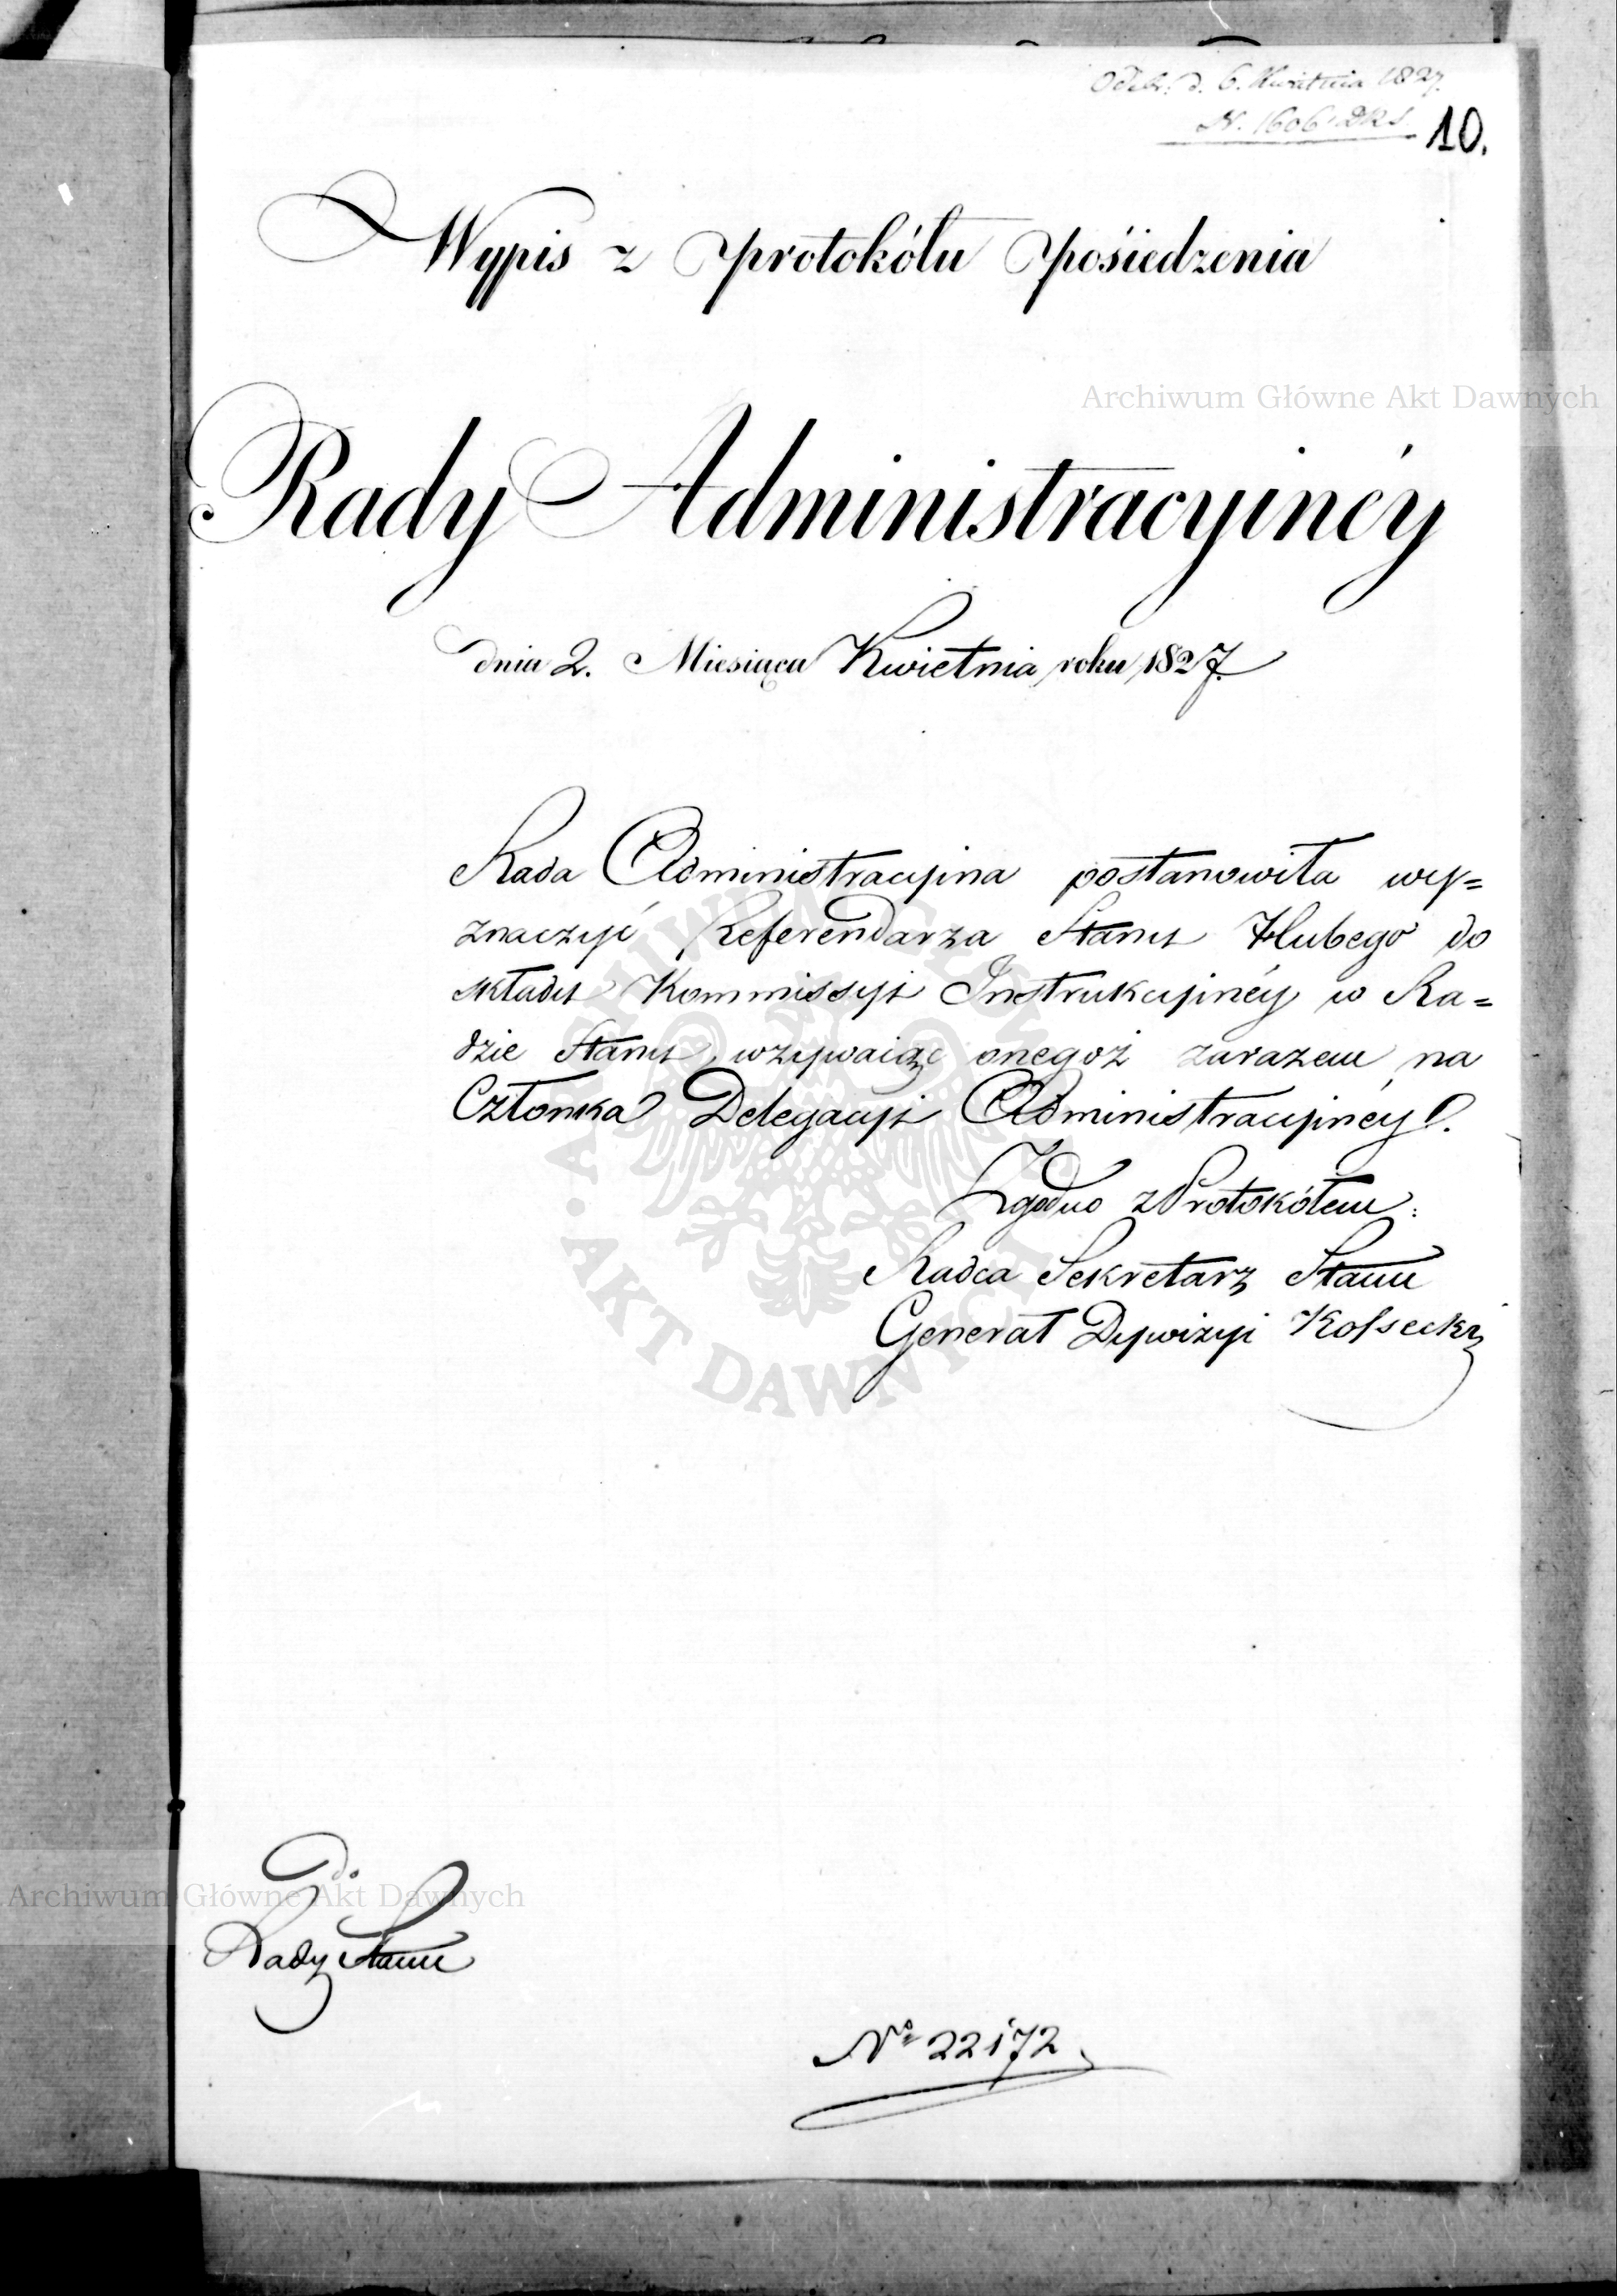 Odebr. d. 6. Kwietnia 1827.
N. 1606 DRS
10.
Wypis z protokółu pośiedzenia
Archiwum Główne Akt Dawnych
Rady Administracyinéy
dnia 2. Miesiąca Kwietnia roku 1827.
Rada Administracyina postanowiła wy=
znaczyć Referendarza Stanu Hubego do
składu Kommissyi Instrukcyinéy w Ra=
dzie Stanu, wzywaiąc onegoż zarazem na
Członka Delegacyi Administracyinéy.
Zgodno z Protokółem:
Radca Sekretarz Stanu
Generał Dywizyi Kossecki
ARCHIWUM GŁÓWNE AKT DAWNYCH
Do
Archiwum Główne Akt Dawnych
Rady Stanu
No 22172